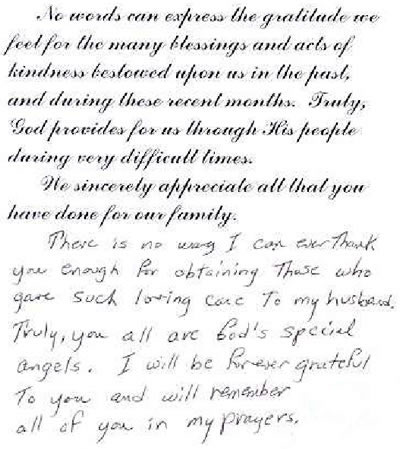 No words can express the gratitude we
feel for the many blessings and acts of
kindness bestowed upon us in the past,
and during these recent months. Truly,
God provides for us through His people
during very difficult times.
We sincerely appreciate all that you
have done for our family.
There is no way I can ever Thank
you enough for obtaining Those who
gave such loving care To my husband.
Truly, you all are God's special
angels. I will be forever grateful
To you and will remember
all of you in my prayers.